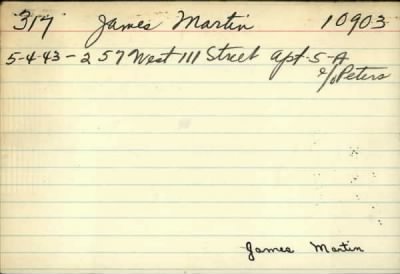 317 James Martin 10903
5-4-43-257 West 111 Street Apt-5-A
c/o Peters
James Martin